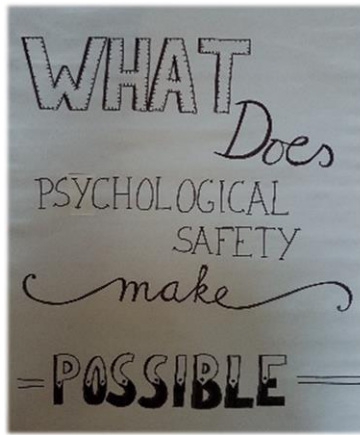 WHAT
Does
PSYCHOLOGICAL
SAFETY
make
POSSIBLE